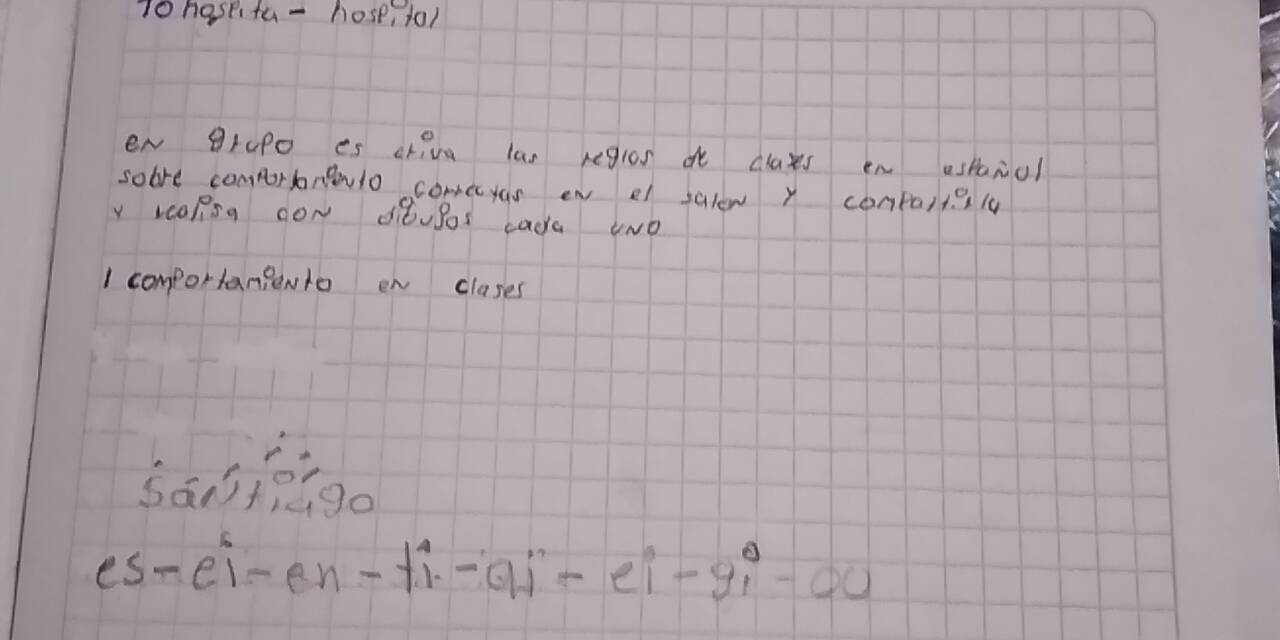 10 hospita - hospital
en grupo es criva las reglos de clases en español
sobre comportamiento correctas en el salon y compartirla
y realisa con dibujos cada uno
1 comportamiento en clases
santiago
es-ei-en-ti-ai-ei-gi-ou